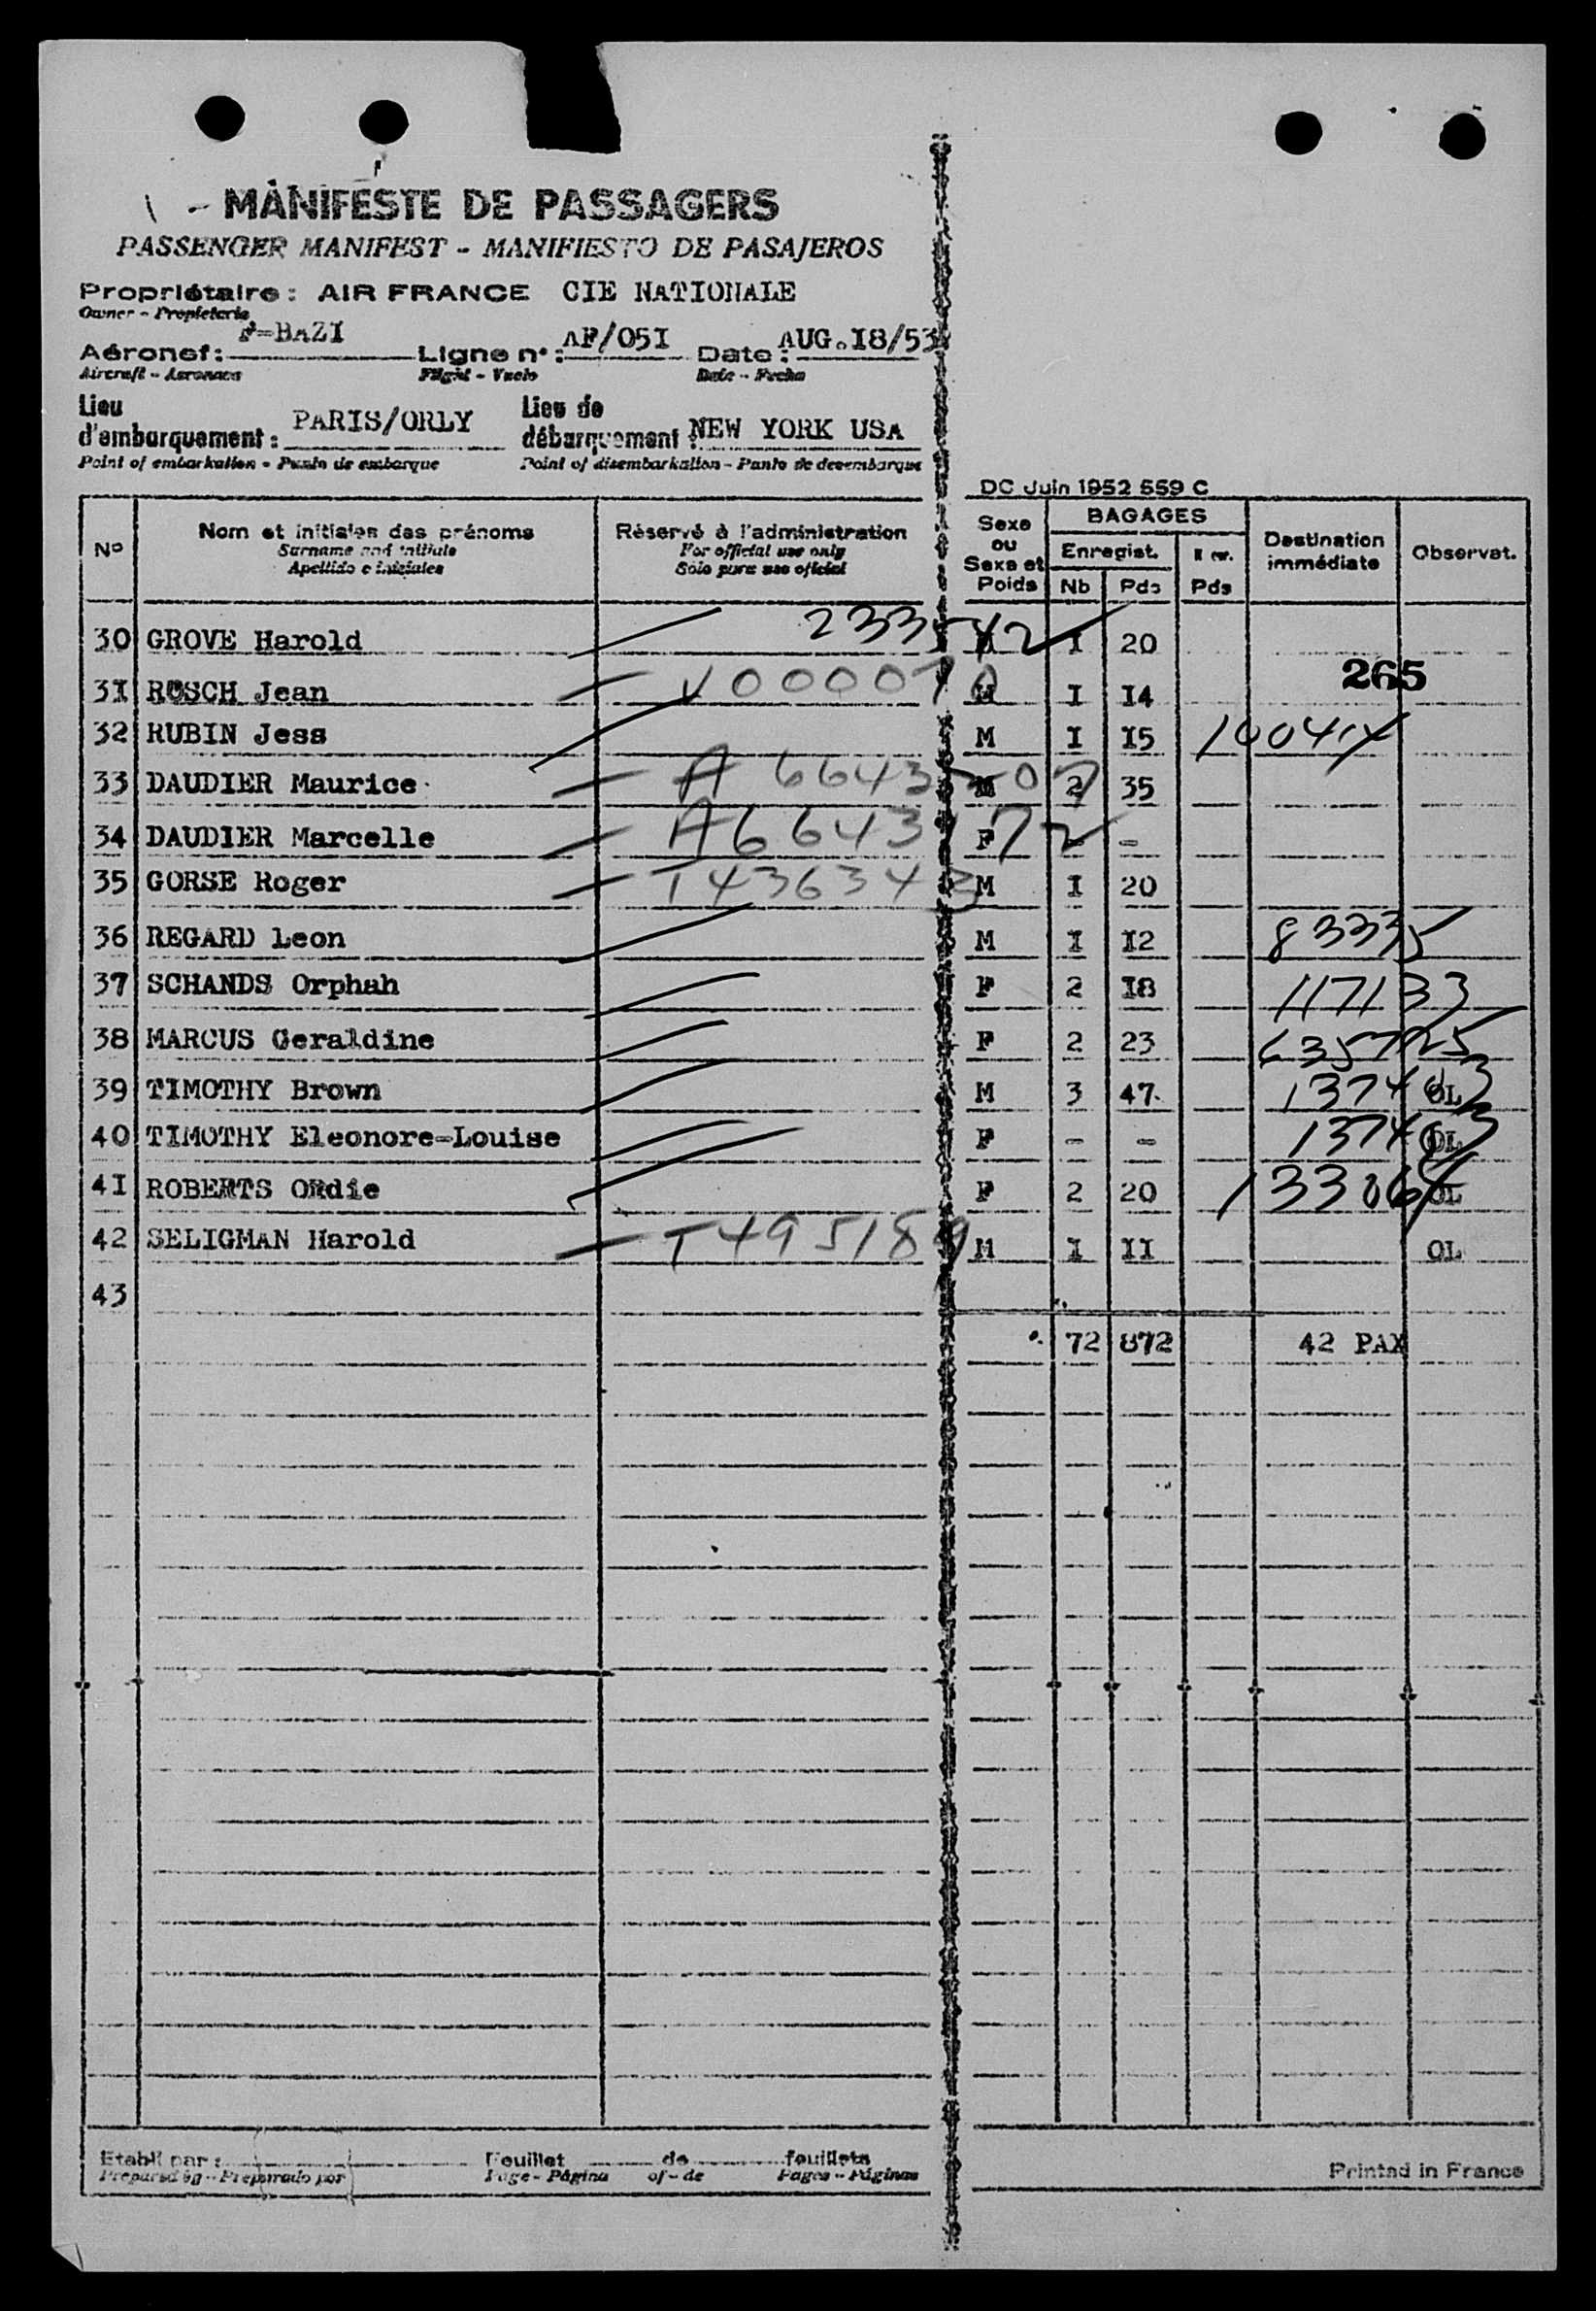 MANIFESTE DE PASSAGERS
PASSENGER MANIFEST - MANIFIESTO DE PASAJEROS
Propriétaire : AIR FRANCE CIE NATIONALE
Owner - Propietario
F=BAZI AF/05I AUG.I8/53
Aéronef : Ligne n° : Date :
Aircraft - Aeronave Flight - Vuelo Date - Fecha
Lieu d'embarquement : PARIS/ORLY Lieu de débarquement : NEW YORK USA
Point of embarkation - Punto de embarque Point of disembarkation - Punto de desembarque
DC Juin 1952 559 C
Nº Nom et initiales des prénoms Réservé à l'administration Sexe ou Sexe et Poids BAGAGES Destination immédiate Observat.
Surname and initials For official use only Enregist.
Apellido e iniciales Sólo para uso oficial Nb Pds Pds
30 GROVE Harold 233542 I 20
265
3I RUSCH Jean V000070 M I I4
32 RUBIN Jess M I I5
33 DAUDIER Maurice M 2 35
34 DAUDIER Marcelle A6643172 F - -
35 GORSE Roger T4363433 M I 20
36 REGARD Leon M I I2 83335
37 SCHANDS Orphah F 2 I8 117133
38 MARCUS Geraldine F 2 23
39 TIMOTHY Brown M 3 47 OL
40 TIMOTHY Eleonore=Louise F - - OL
4I ROBERTS ORdie F 2 20 OL
42 SELIGMAN Harold T495189 M I II OL
43
72 872 42 PAX
Etabli par : Feuillet de feuillets
Prepared by - Preparado por Page - Página of - de Pages - Páginas
Printed in France